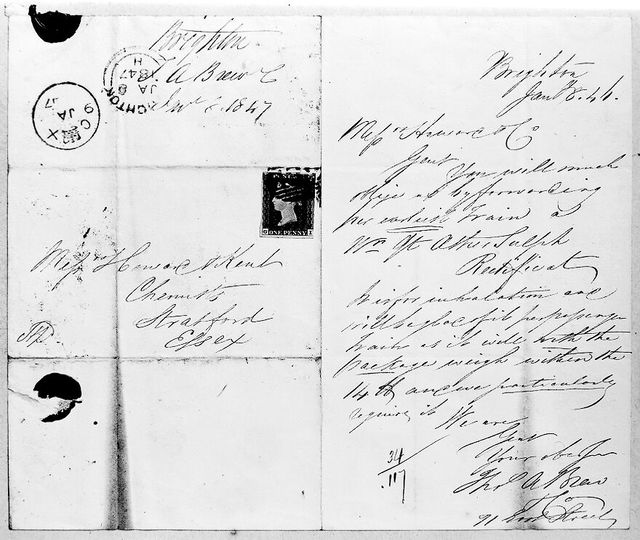 Brighton
A Brew & C
Jan 8. 1847
BRIGHTON
JA 8
1847
H
C
9 JA
X
POSTAGE
ONE PENNY
Messrs Howard & Kent
Chemists
Stratford
Essex
Brighton
Jan 8. 46.
Messrs Howard & Co
Gent You will much
oblige us by forwarding
per earliest train a
Wn Qt Ether Sulph
Rectificat
It is for inhalation and
will be glad of it per passenger
train as it will with the
package weigh within the
14 lb and we particularly
require it We are
Gent
Your obe
Thos A Brew
& Co
91 Street
34
117